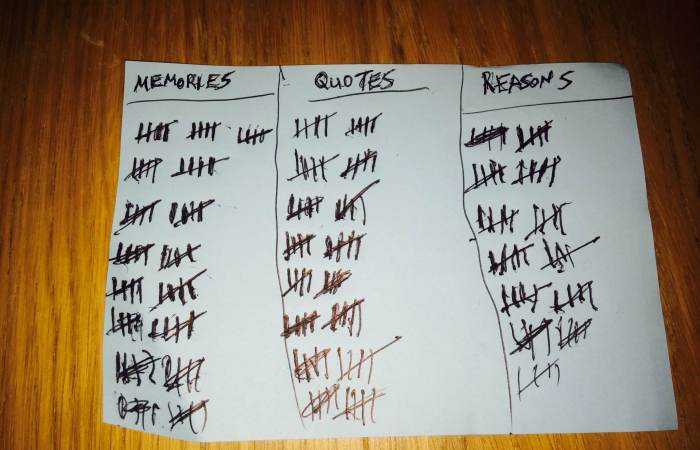 MEMORIES QUOTES REASONS